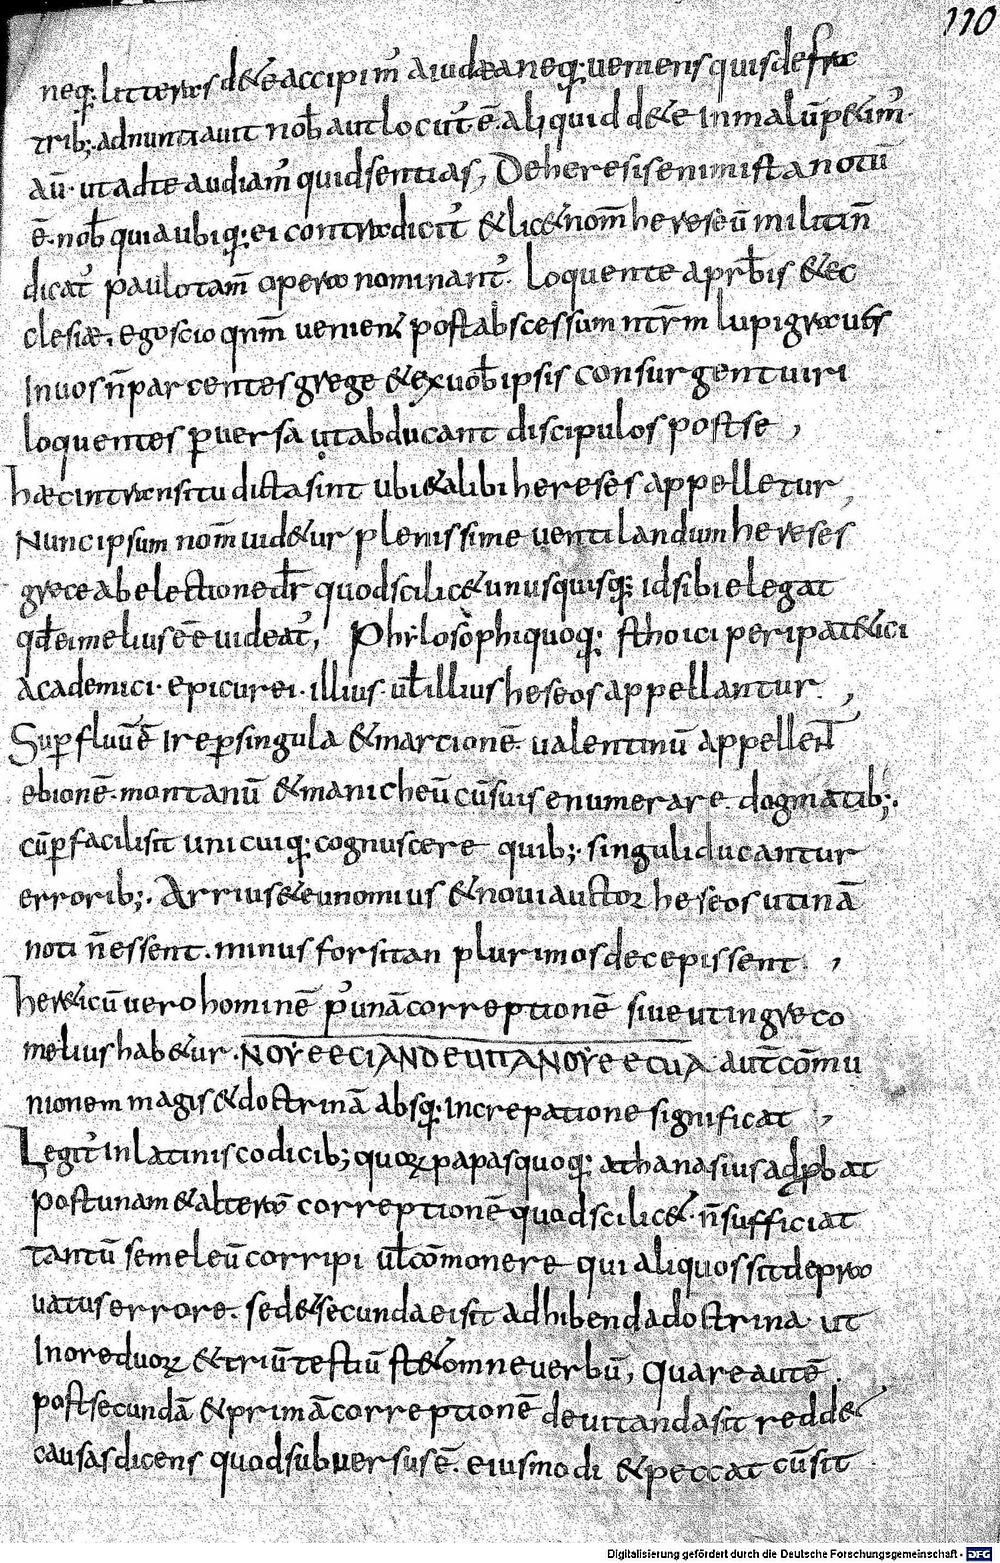 110
neq; litteras de te accipim̉ a iudaea neq; ueniens quis de fra
trib; adnuntiauit nob̄ aut locut̉ ē aliquid de te in malū petim̉
aū ut a te audiam̉ quid sentias, De heresi enim ista notū
ē nob̄ quia ubiq; ei contradicit̉ & licet nom̄ hereseū militiñ
dicat̉ paulo tam̄ opera nominant̉. Loquente aprb̄is & ec
clesiæ, ego scio qnm̄ uenient post abscessum ntr̄m lupi graues
In uos n̄ parcentes grege & ex uob̄ ipsis consurgent uiri
loquentes puersa ut abducant discipulos post se,
haec in transitu dicta sint ubi & alibi hereses appelletur,
Nunc ipsum nom̄ uidetur plenissime uentilandum hereses
grece ab electione dr̄ quod scilicet unusquisq; id sibi elegat
qd̄ ei melius eē uideat̉, Philosophi quoq; sthoici peripatetici
academici epicurei illius ul̄ illius heseos appellantur,
Supfluū ē ire p singula & marcionē ualentinū appellent
ebionē montanū & manicheū cū suis enumerare dogmatib;
cū pfacili sit unicuiq; cognuscere quib; singuli ducantur
errorib;. Arrius & eunomius & noui auctor heseos utinā
noti n̄ essent. minus forsitan plurimos decepissent,
hereticū uero hominē p̉ unā correptionē siue ut in greco
melius habetur. NOYEECIANDEUITANOYEECUA aut cōmu
nionem magis & doctrinā absq; increpatione significat,
Legit̉ in latinis codicib; quoꝝ papas quoq; athanasius adpbat
post unam & alterā correptionē quod scilicet n̄ sufficiat
tantū semel eū corripi ul̄ cōmonere qui aliquo sit depra
uatus errore. sed & secunda ei sit adhibenda doctrina ut
In ore duoꝝ & triū testiū stet omne uerbū, Quare autē
post secundā & primā correptionē deuitanda sit reddet
causas dicens quod subuersus ē. eiusmodi & peccat cū sit
Digitalisierung gefördert durch die Deutsche Forschungsgemeinschaft - DFG